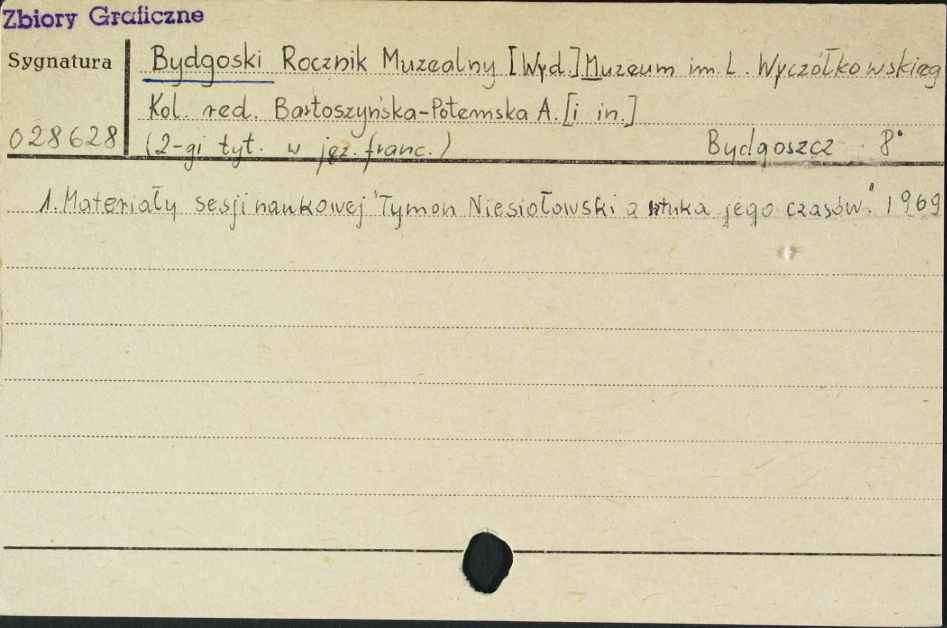 Zbiory Graficzne
Sygnatura
Bydgoski Rocznik Muzealny [Wyd.] Muzeum im. L. Wyczółkowskieg
Kol. red. Bartoszyńska-Potemska A. [i in.]
028628
(2-gi tyt. w jęz. franc.) Bydgoszcz 8°
1. Materiały sesji naukowej "Tymon Niesiołowski a sztuka jego czasów." 1969